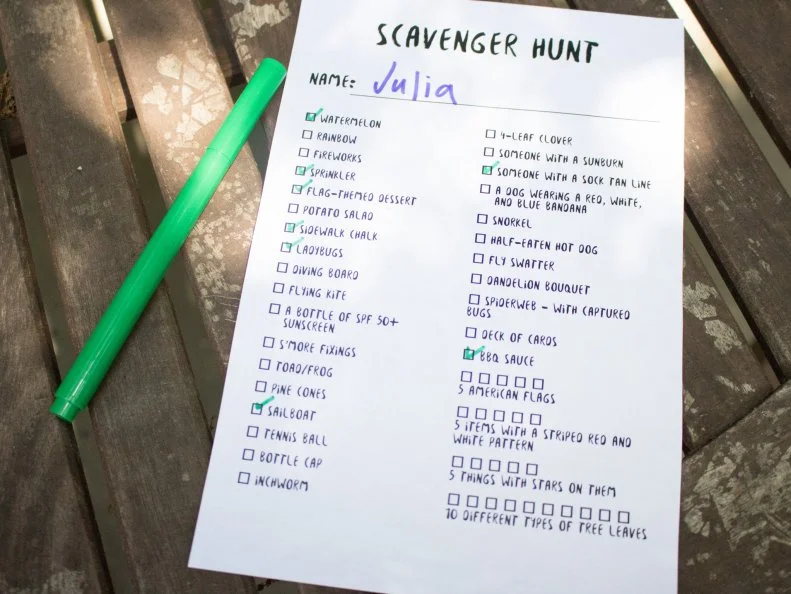 SCAVENGER HUNT
NAME: Julia
WATERMELON
RAINBOW
FIREWORKS
SPRINKLER
FLAG-THEMED DESSERT
POTATO SALAD
SIDEWALK CHALK
LADYBUGS
DIVING BOARD
FLYING KITE
A BOTTLE OF SPF 50+
SUNSCREEN
S'MORE FIXINGS
TOAD/FROG
PINE CONES
SAILBOAT
TENNIS BALL
BOTTLE CAP
INCHWORM
4-LEAF CLOVER
SOMEONE WITH A SUNBURN
SOMEONE WITH A SOCK TAN LINE
A DOG WEARING A RED, WHITE,
AND BLUE BANDANA
SNORKEL
HALF-EATEN HOT DOG
FLY SWATTER
DANDELION BOUQUET
SPIDERWEB - WITH CAPTURED
BUGS
DECK OF CARDS
BBQ SAUCE
5 AMERICAN FLAGS
5 ITEMS WITH A STRIPED RED AND
WHITE PATTERN
5 THINGS WITH STARS ON THEM
10 DIFFERENT TYPES OF TREE LEAVES